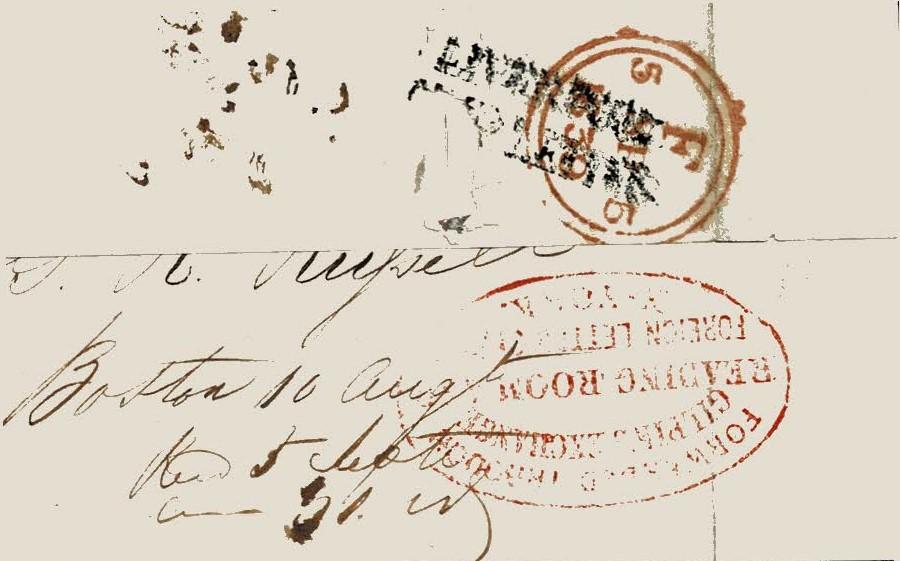 LIVERPOOL
SHIP LETTER
F
5 SE 5
1839
R. Russell
Boston 10 Augt
Recd 5 Septr
FORWARDED THROUGH
GILPIN'S EXCHANGE
READING ROOM
FOREIGN LETTER
N-YORK